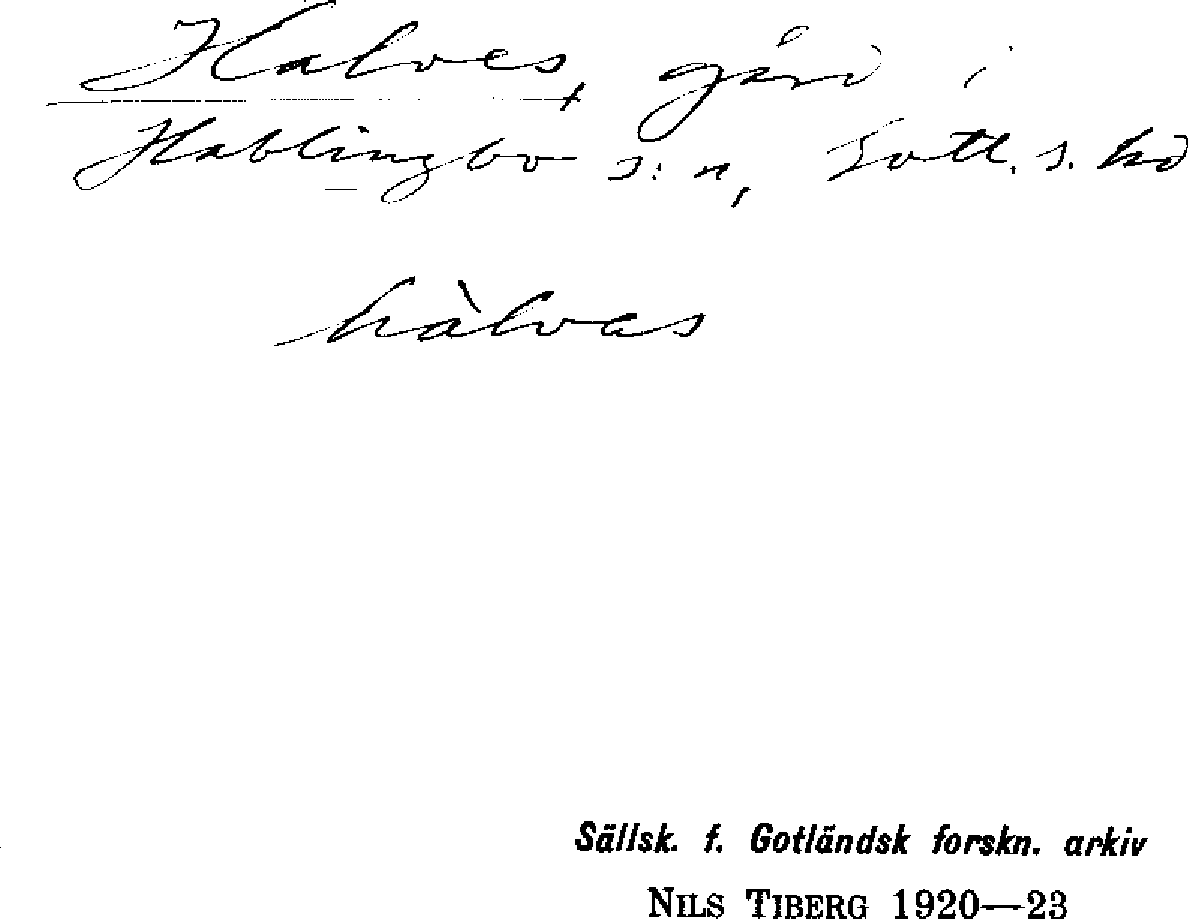 Halves, gård i
Hablingbo s:n, Gotl. s. hd
hàlvas
Sällsk. f. Gotländsk forskn. arkiv
NILS TIBERG 1920—23